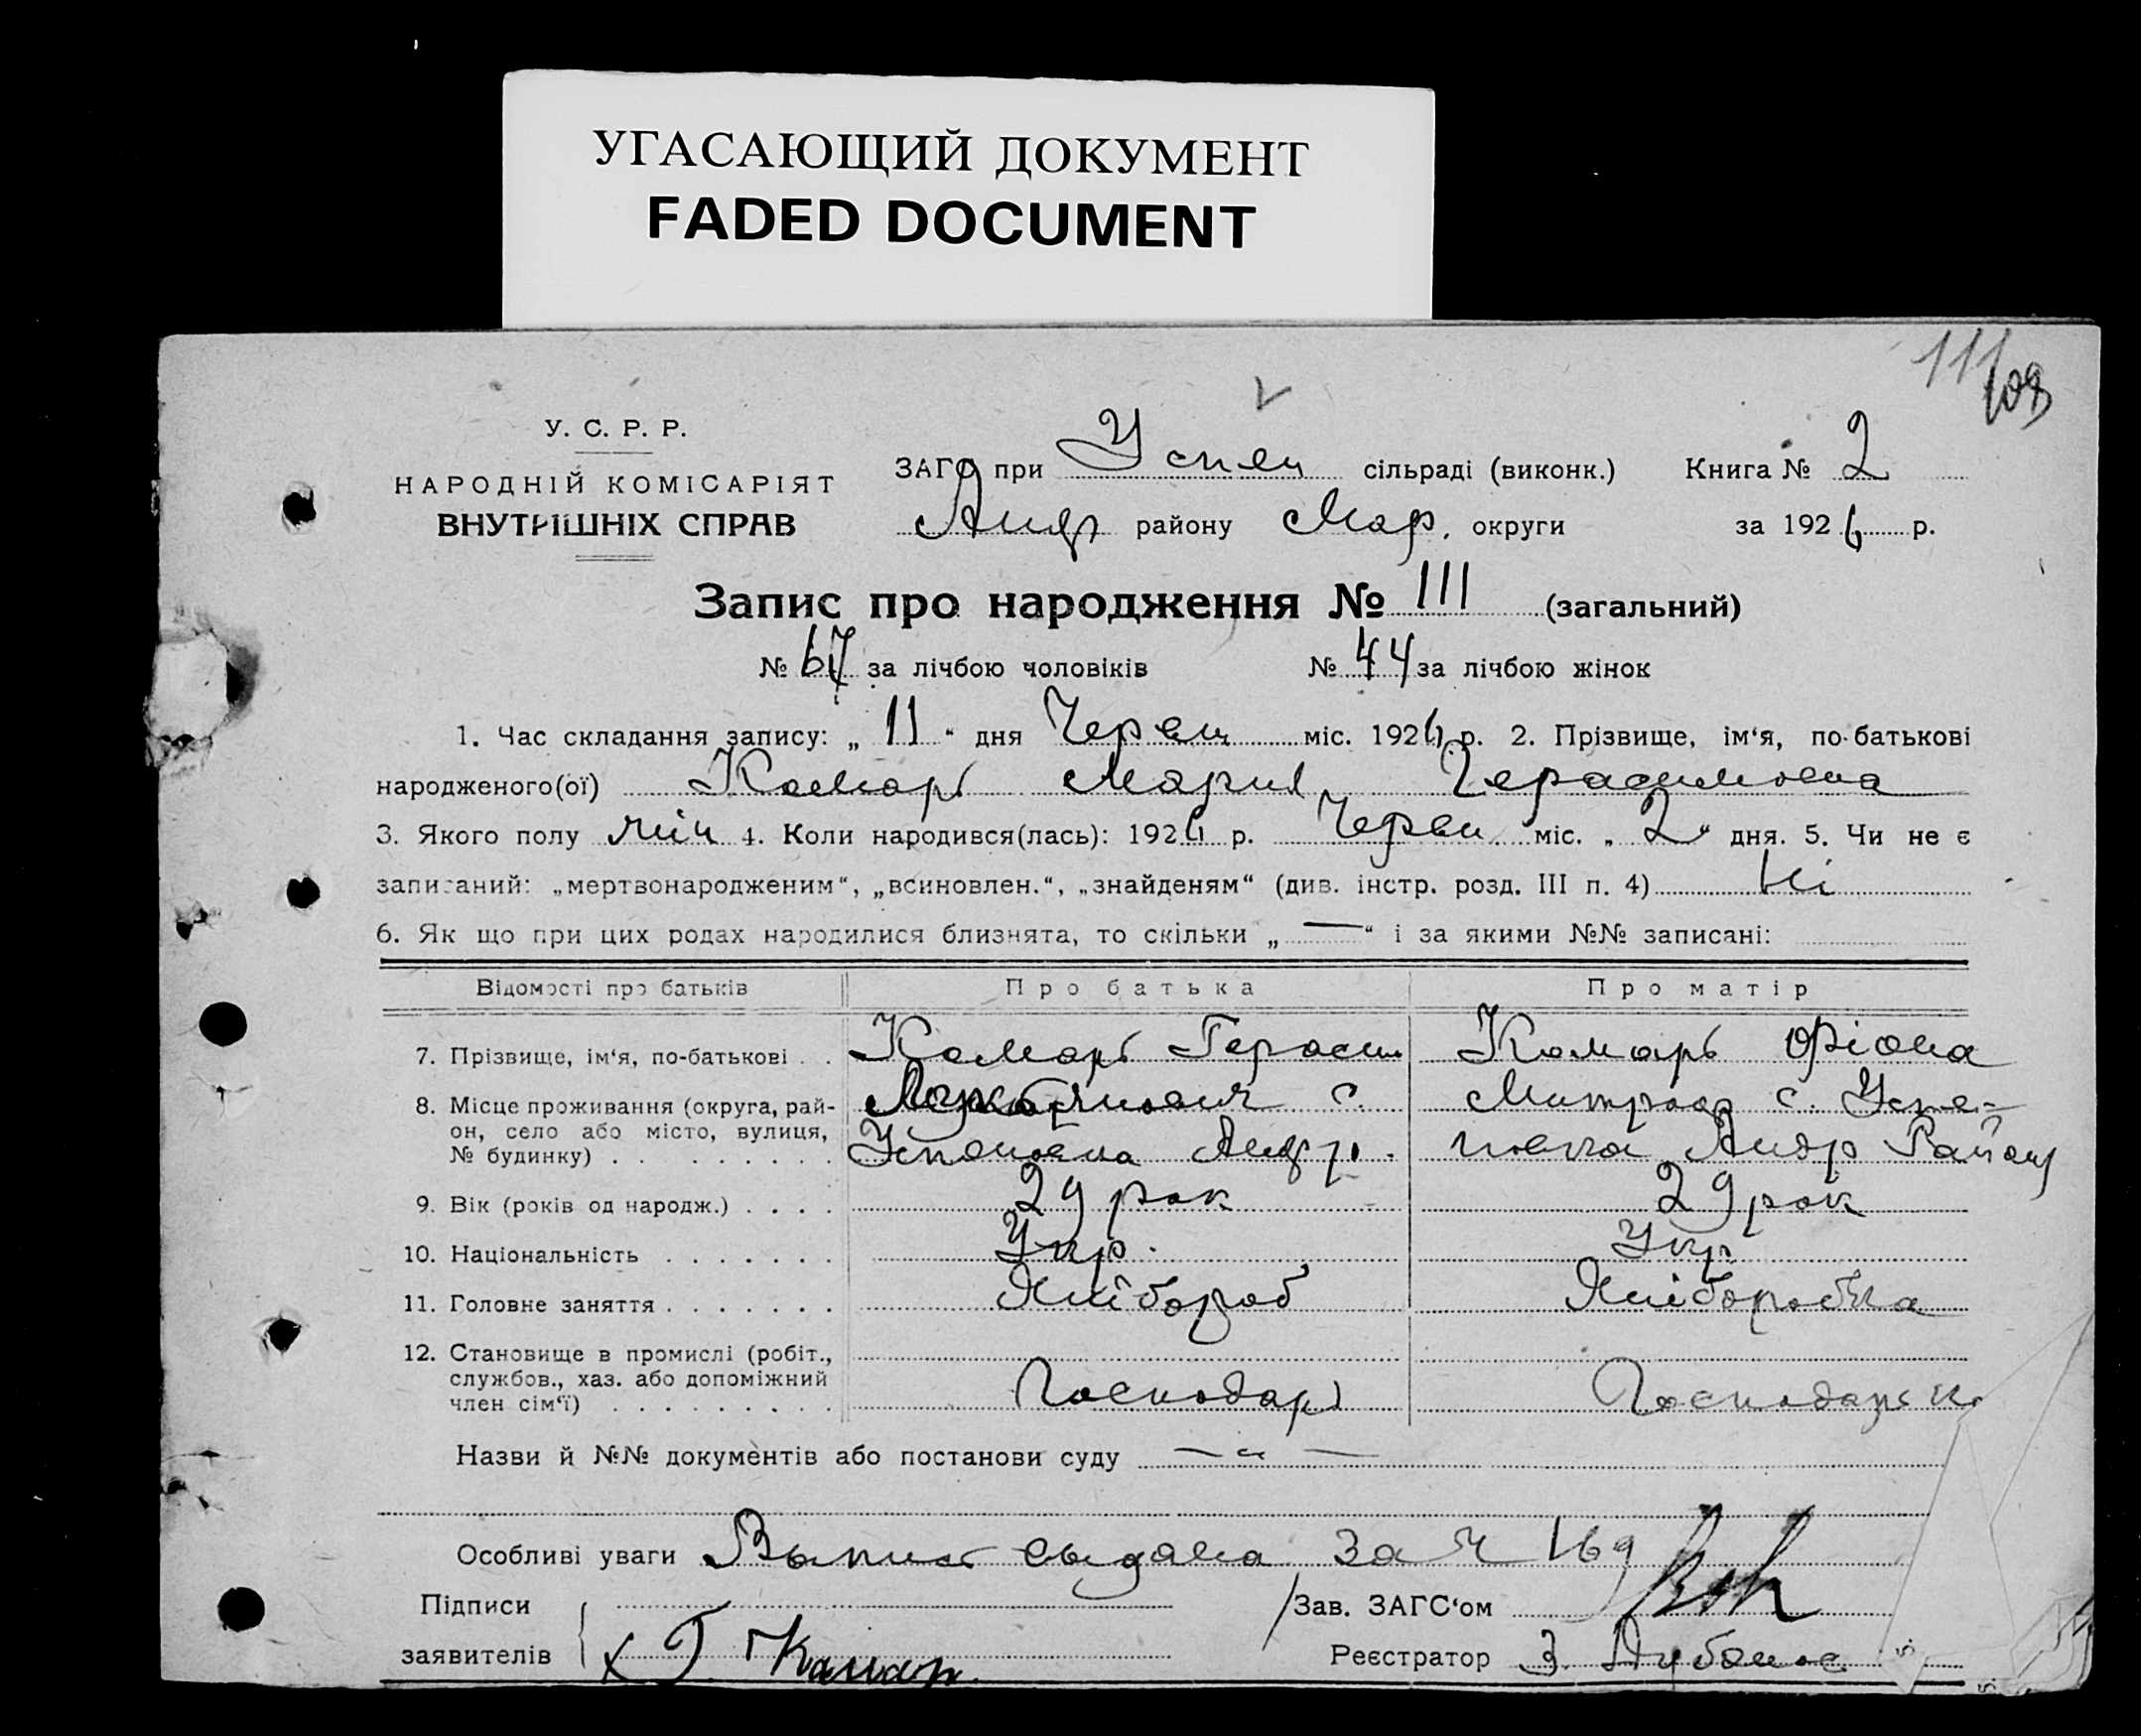 УГАСАЮЩИЙ ДОКУМЕНТ
FADED DOCUMENT
111
У. С. Р. Р.
НАРОДНІЙ КОМІСАРІЯТ
ВНУТРІШНІХ СПРАВ
ЗАГС при Успен сільраді (виконк.) Книга № 2
Андр району Мар. округи за 1926 р.
Запис про народження № 111 (загальний)
№ 67 за лічбою чоловіків № 44 за лічбою жінок
1. Час складання запису: „ 11 “ дня Червн міс. 1926 р. 2. Прізвище, ім‘я, по-батькові
народженого(ої) Комарь Мария Герасимовна
3. Якого полу жін 4. Коли народився(лась): 1926 р. Червн міс. „ 2 “ дня. 5. Чи не є
записаний: „мертвонародженим“, „всиновлен.“, „знайденям“ (див. інстр. розд. III п. 4) Ні
6. Як що при цих родах народилися близнята, то скільки „ — “ і за якими №№ записані:
Відомості про батьків Про батька Про матір
7. Прізвище, ім‘я, по-батькові . . Комарь Герасим Комарь Фіона
8. Місце проживання (округа, рай- с. Митроф с. Успе-
он, село або місто, вулиця, Успеновка Андр. новка Андр Району
№ будинку) . . . . . . . . .
9. Вік (років од народж.) . . . . 29 рок 29 рок
10. Національність . . . . . . . Укр. Укр
11. Головне заняття . . . . . . . Хлібороб Хліборобка
12. Становище в промислі (робіт.,
службов., хаз. або допоміжний
член сім‘ї) . . . . . . . . . Господарь Господарька
Назви й №№ документів або постанови суду — „ —
Особливі уваги Выпись выдана за Ч 169
Підписи Зав. ЗАГС‘ом
заявителів х Г Камар Реєстратор З.